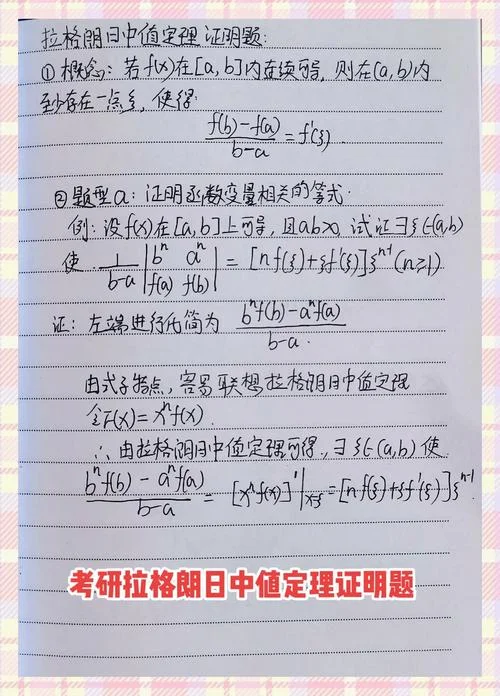 拉格朗日中值定理 证明题:
① 概念: 若f(x)在[a,b]内连续可导, 则在(a,b)内
至少存在一点ξ, 使得:
\frac{f(b)-f(a)}{b-a}=f'(ξ)
② 题型a: 证明函数变量相关的等式.
例: 设f(x)在[a,b]上可导, 且ab>0, 试证∃ξ∈(a,b)
使 \frac{1}{b-a}\begin{vmatrix}b^n & a^n\\f(a) & f(b)\end{vmatrix}=[nf(ξ)+ξf'(ξ)]ξ^{n-1}(n≥1)
证: 左端进行化简为 \frac{b^nf(b)-a^nf(a)}{b-a}.
由式子特点, 容易联想拉格朗日中值定理
令F(x)=x^nf(x).
∴由拉格朗日中值定理可得, ∃ξ∈(a,b)使
\frac{b^nf(b)-a^nf(a)}{b-a}=[x^nf(x)]'|_{x=ξ}=[nf(ξ)+ξf'(ξ)]ξ^{n-1}.
考研拉格朗日中值定理证明题